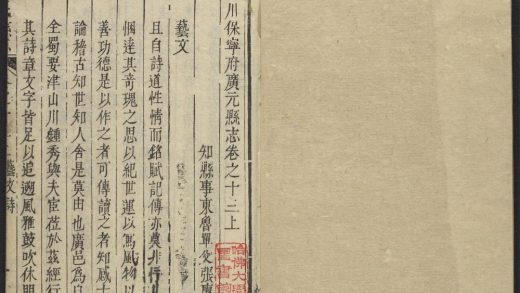 川保寧府廣元縣志卷之十三上
知縣事東魯單父張
藝文
且自詩道性情而銘賦記傳亦莫非
悃達其竒瑰之思以紀世運以寫風物以
善功德是以作之者可傳讀之者知感
論稽古知世知人舍是莫由也廣邑爲
全蜀要津山川鍾秀與夫宦蒞於茲經行
其詩章文字皆足以追遡風雅鼓吹休明
藝文詩
哈佛大